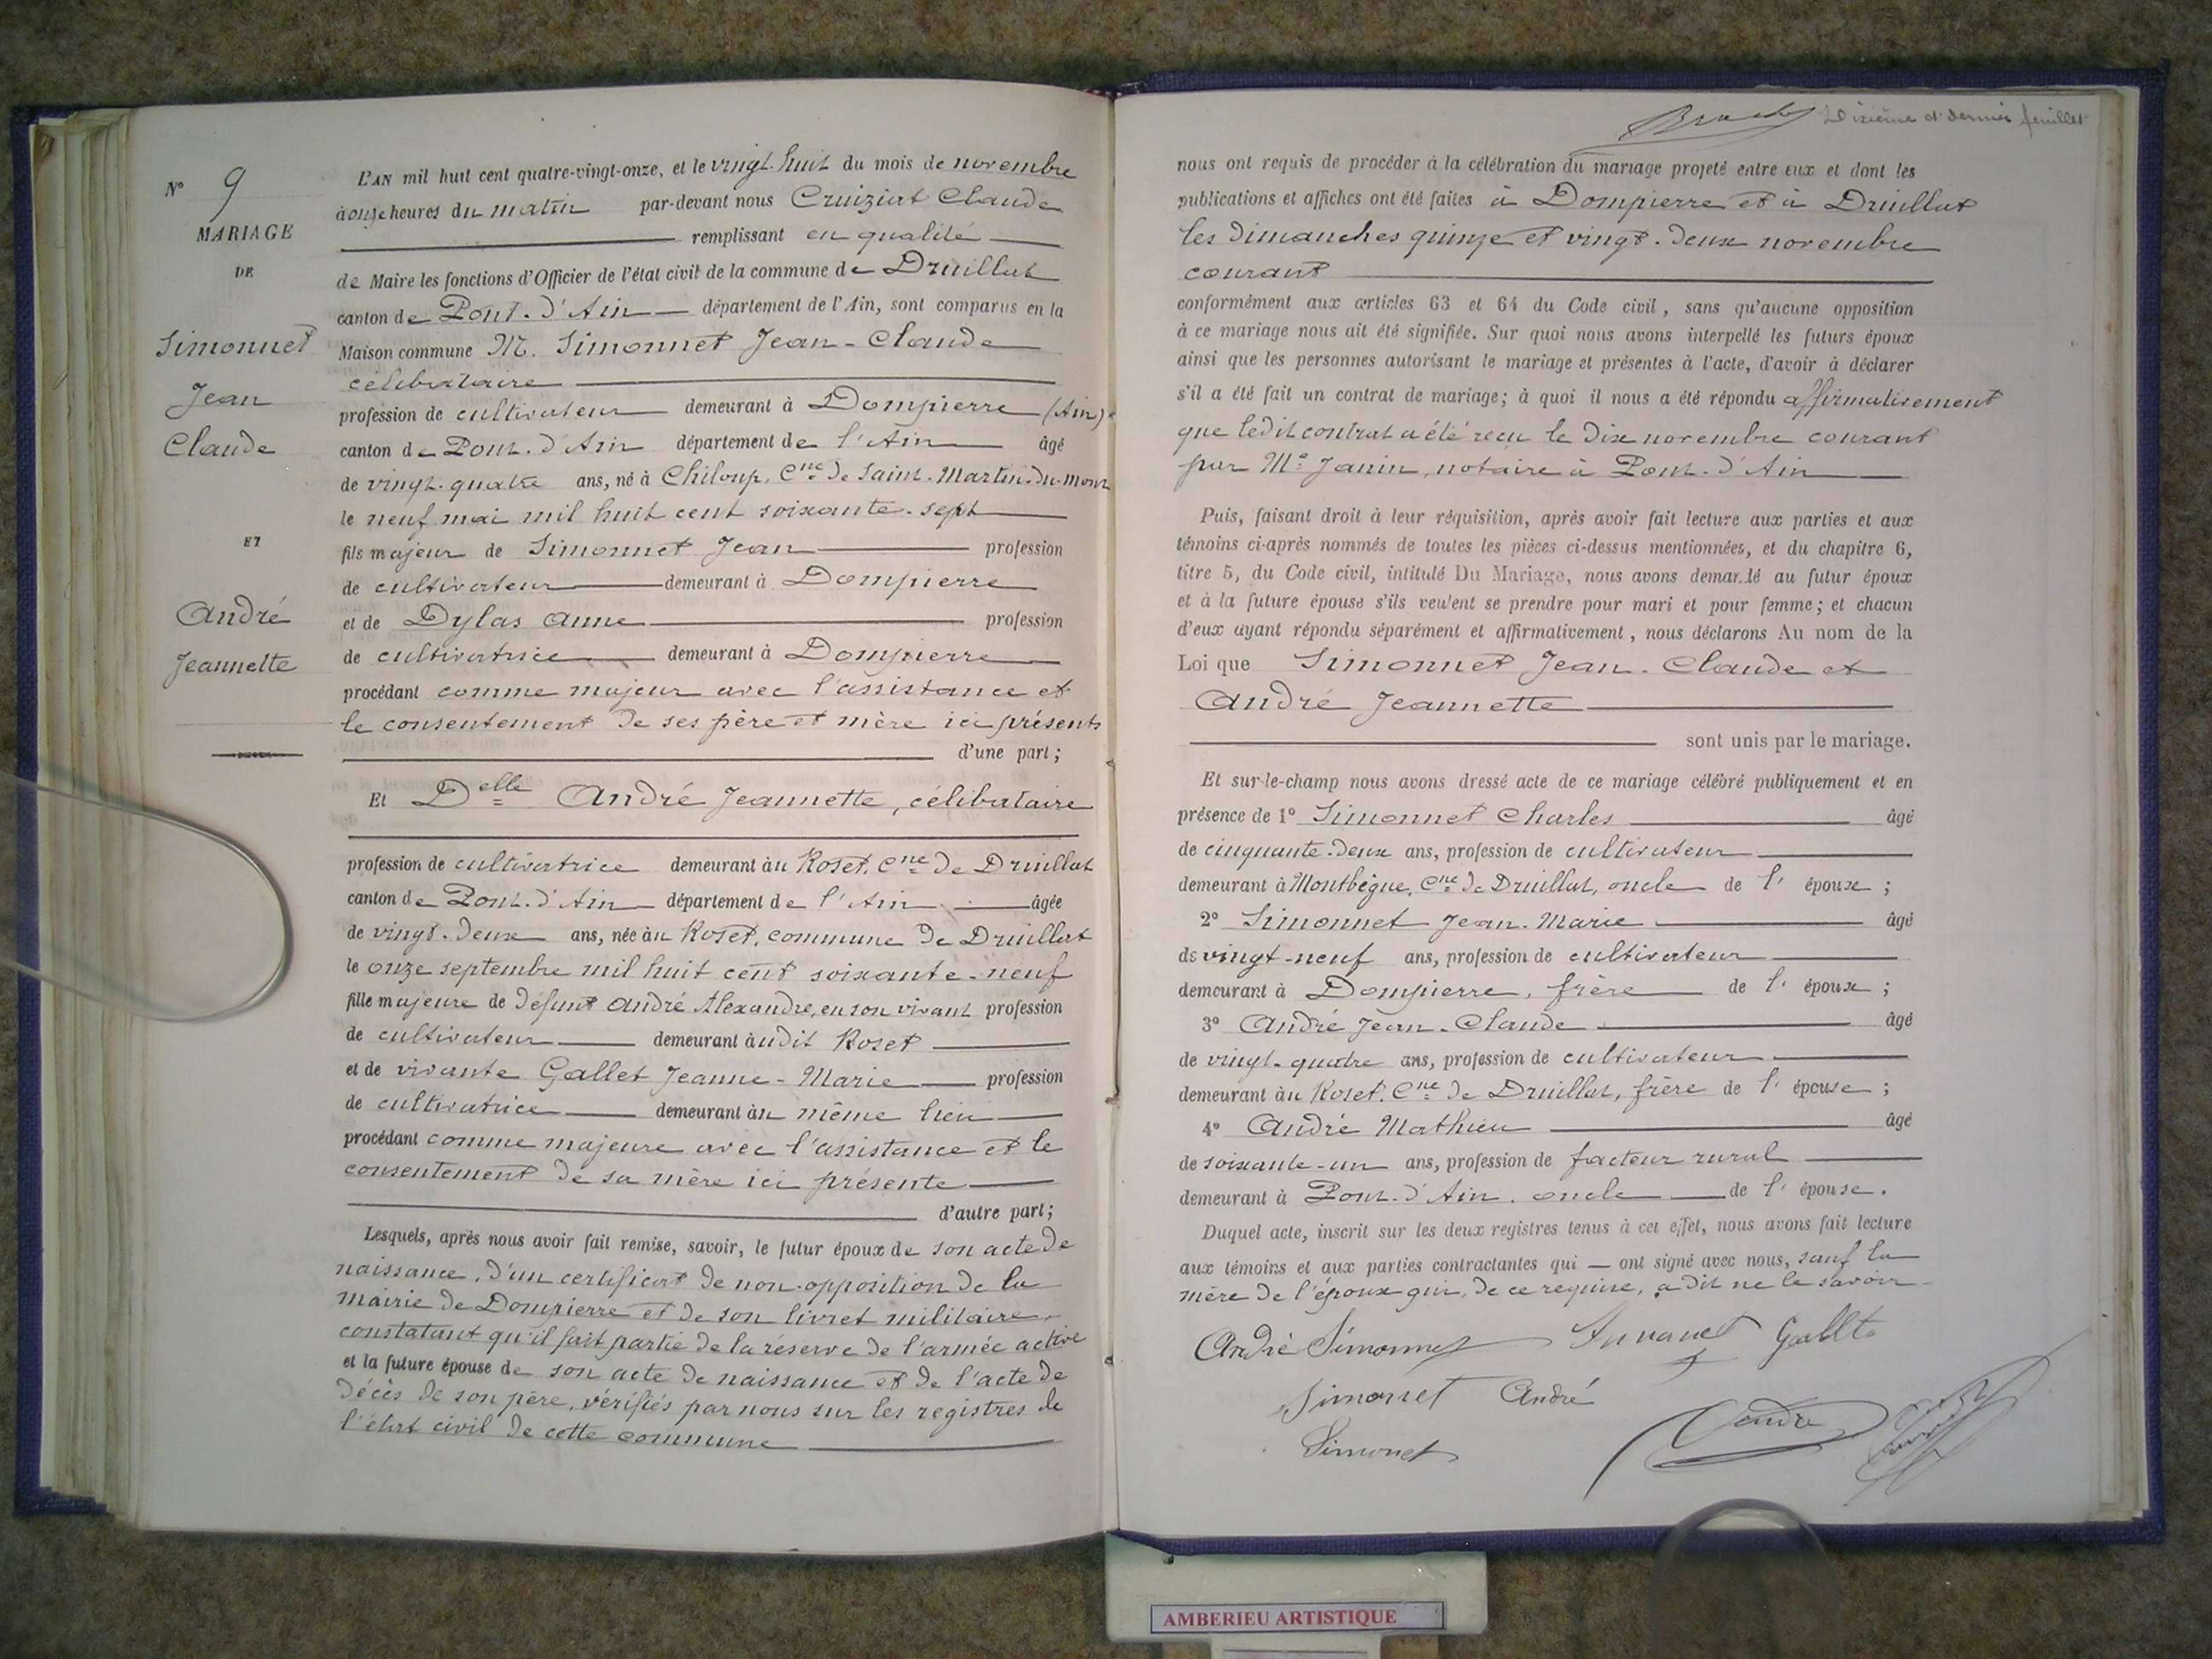 N° 9
MARIAGE
DE
Simonnet
Jean
Claude
ET
André
Jeannette
L'AN mil huit cent quatre-vingt-onze, et le vingt-huit du mois de novembre
à onze heures du matin par-devant nous Cruiziat Claude
remplissant en qualité
de Maire les fonctions d'Officier de l'état civil de la commune de Druillat
canton de Pont-d'Ain département de l'Ain, sont comparus en la
Maison commune M. Simonnet Jean-Claude
célibataire
profession de cultivateur demeurant à Dompierre (Ain)
canton de Pont-d'Ain département de l'Ain âgé
de vingt-quatre ans, né à Chiloup, Cne de Saint-Martin-du-Mont
le neuf mai mil huit cent soixante-sept
fils majeur de Simonnet Jean profession
de cultivateur demeurant à Dompierre
et de Dylas Anne profession
de cultivatrice demeurant à Dompierre
procédant comme majeur avec l'assistance et
le consentement de ses père et mère ici présents
d'une part;
Et Delle André Jeannette, célibataire
profession de cultivatrice demeurant au Roset, Cne de Druillat
canton de Pont-d'Ain département de l'Ain âgée
de vingt-deux ans, née au Roset, commune de Druillat
le onze septembre mil huit cent soixante-neuf
fille majeure de défunt André Alexandre, en son vivant profession
de cultivateur demeurant audit Roset
et de vivante Gallet Jeanne-Marie profession
de cultivatrice demeurant au même lieu
procédant comme majeure avec l'assistance et le
consentement de sa mère ici présente
d'autre part;
Lesquels, après nous avoir fait remise, savoir, le futur époux de son acte de
naissance, d'un certificat de non-opposition de la
mairie de Dompierre et de son livret militaire,
constatant qu'il fait partie de la réserve de l'armée active
et la future épouse de son acte de naissance et de l'acte de
décès de son père, vérifiés par nous sur les registres de
l'état civil de cette commune
Dixième et dernier feuillet
nous ont requis de procéder à la célébration du mariage projeté entre eux et dont les
publications et affiches ont été faites à Dompierre et à Druillat
les dimanches quinze et vingt-deux novembre
courant
conformément aux articles 63 et 64 du Code civil, sans qu'aucune opposition
à ce mariage nous ait été signifiée. Sur quoi nous avons interpellé les futurs époux
ainsi que les personnes autorisant le mariage et présentes à l'acte, d'avoir à déclarer
s'il a été fait un contrat de mariage; à quoi il nous a été répondu affirmativement
que ledit contrat a été reçu le dix novembre courant
par Me Janin, notaire à Pont-d'Ain
Puis, faisant droit à leur réquisition, après avoir fait lecture aux parties et aux
témoins ci-après nommés de toutes les pièces ci-dessus mentionnées, et du chapitre 6,
titre 5, du Code civil, intitulé Du Mariage, nous avons demandé au futur époux
et à la future épouse s'ils veulent se prendre pour mari et pour femme; et chacun
d'eux ayant répondu séparément et affirmativement, nous déclarons Au nom de la
Loi que Simonnet Jean-Claude et
André Jeannette
sont unis par le mariage.
Et sur-le-champ nous avons dressé acte de ce mariage célébré publiquement et en
présence de 1° Simonnet Charles âgé
de cinquante-deux ans, profession de cultivateur
demeurant à Montbègue, Cne de Druillat, oncle de l' époux;
2° Simonnet Jean-Marie âgé
de vingt-neuf ans, profession de cultivateur
demeurant à Dompierre, frère de l' époux;
3° André Jean-Claude âgé
de vingt-quatre ans, profession de cultivateur
demeurant au Roset, Cne de Druillat, frère de l' épouse;
4° André Mathieu âgé
de soixante-un ans, profession de facteur rural
demeurant à Pont-d'Ain, oncle de l' épouse.
Duquel acte, inscrit sur les deux registres tenus à cet effet, nous avons fait lecture
aux témoins et aux parties contractantes qui ont signé avec nous, sauf la
mère de l'époux qui, de ce requise, a dit ne le savoir
André Simonnet Gallet
Simonet André
Simonet André
AMBERIEU ARTISTIQUE